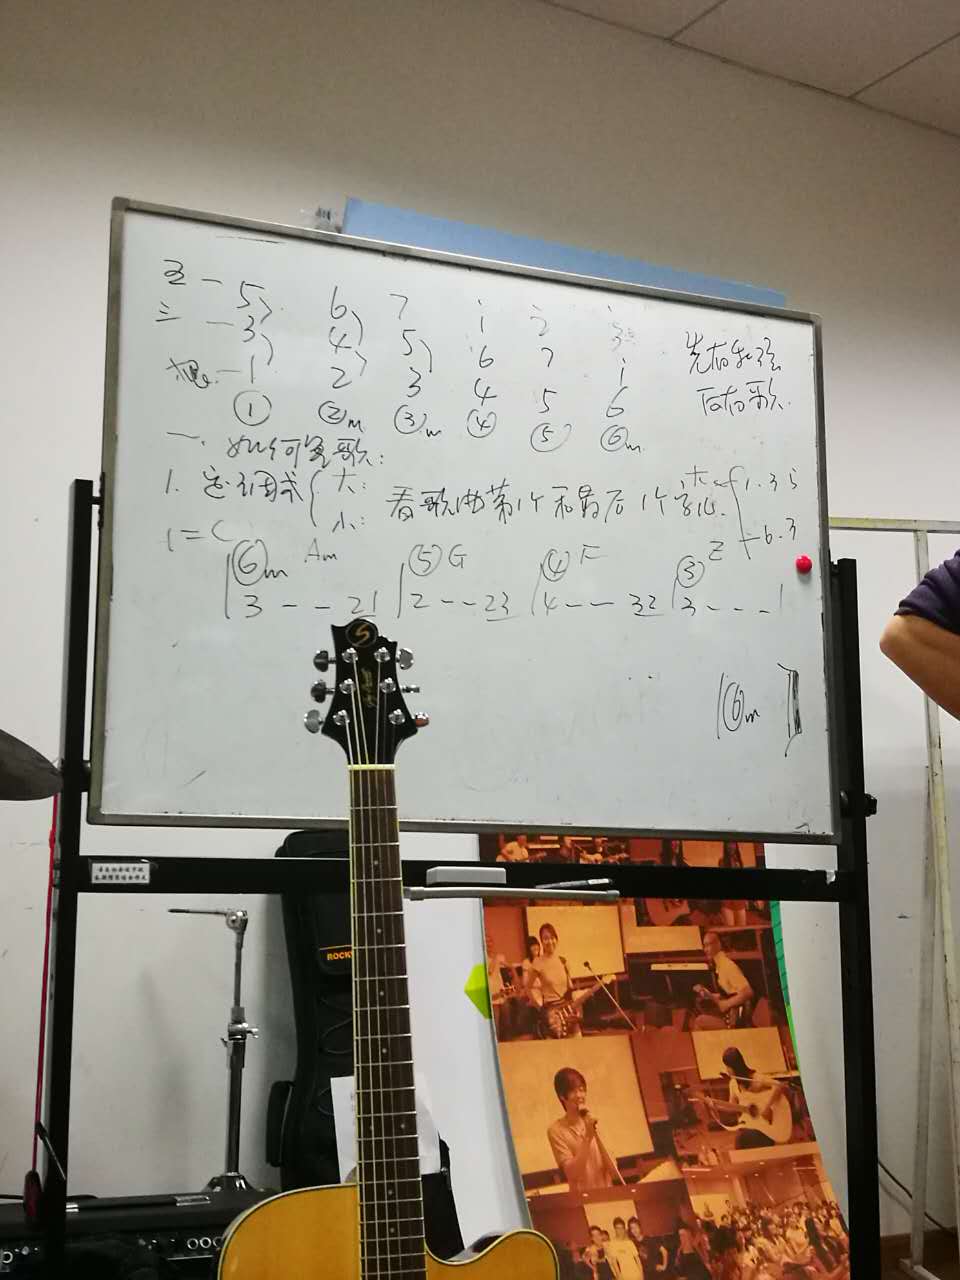 五 - 5 6 7 i 2̇ 3̇
三 - 3 4 5 6 7 i
根 - 1 2 3 4 5 6
① ②m ③m ④ ⑤ ⑥m
先有和弦
后有歌.
一. 如何写歌:
1. 定调式 { 大: 小: 看歌曲第1个和最后1个字化. 大 { 1. 3 5 小 6. 3
1=C
⑥m Am ⑤ G ④ F ③ E
| 3 - - 21 | 2 - - 23 | 4 - - 32 | 3 - - - |
| ⑥m ‖
S
ROCK